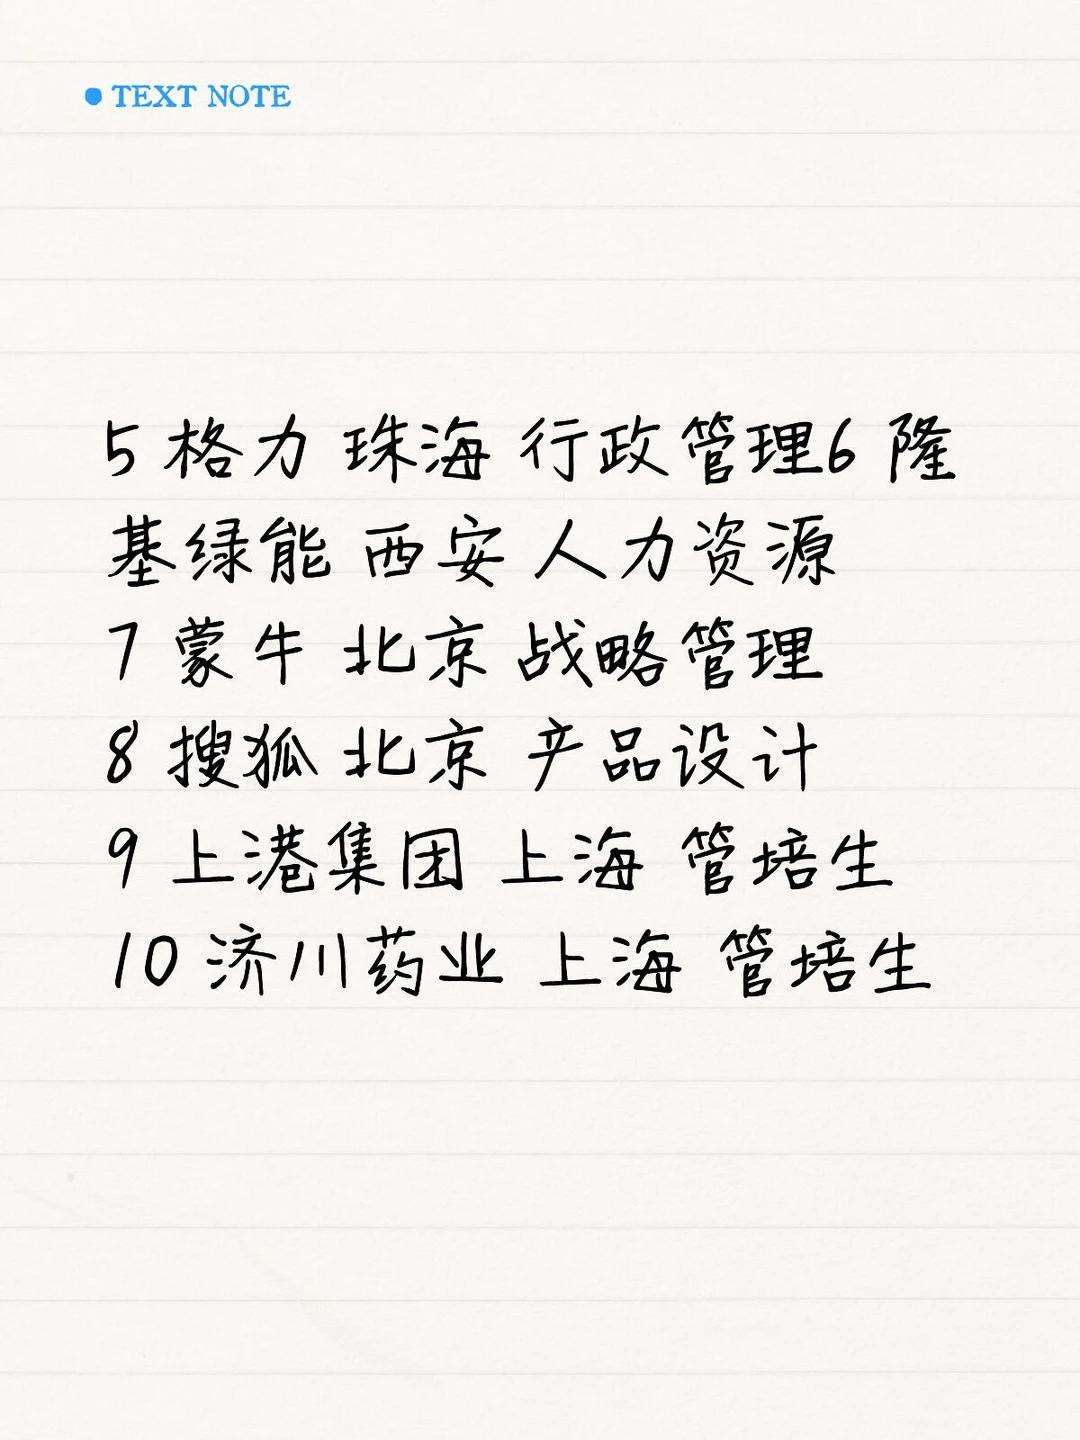 TEXT NOTE
5 格力 珠海 行政管理6 隆
基绿能 西安 人力资源
7 蒙牛 北京 战略管理
8 搜狐 北京 产品设计
9 上港集团 上海 管培生
10 济川药业 上海 管培生